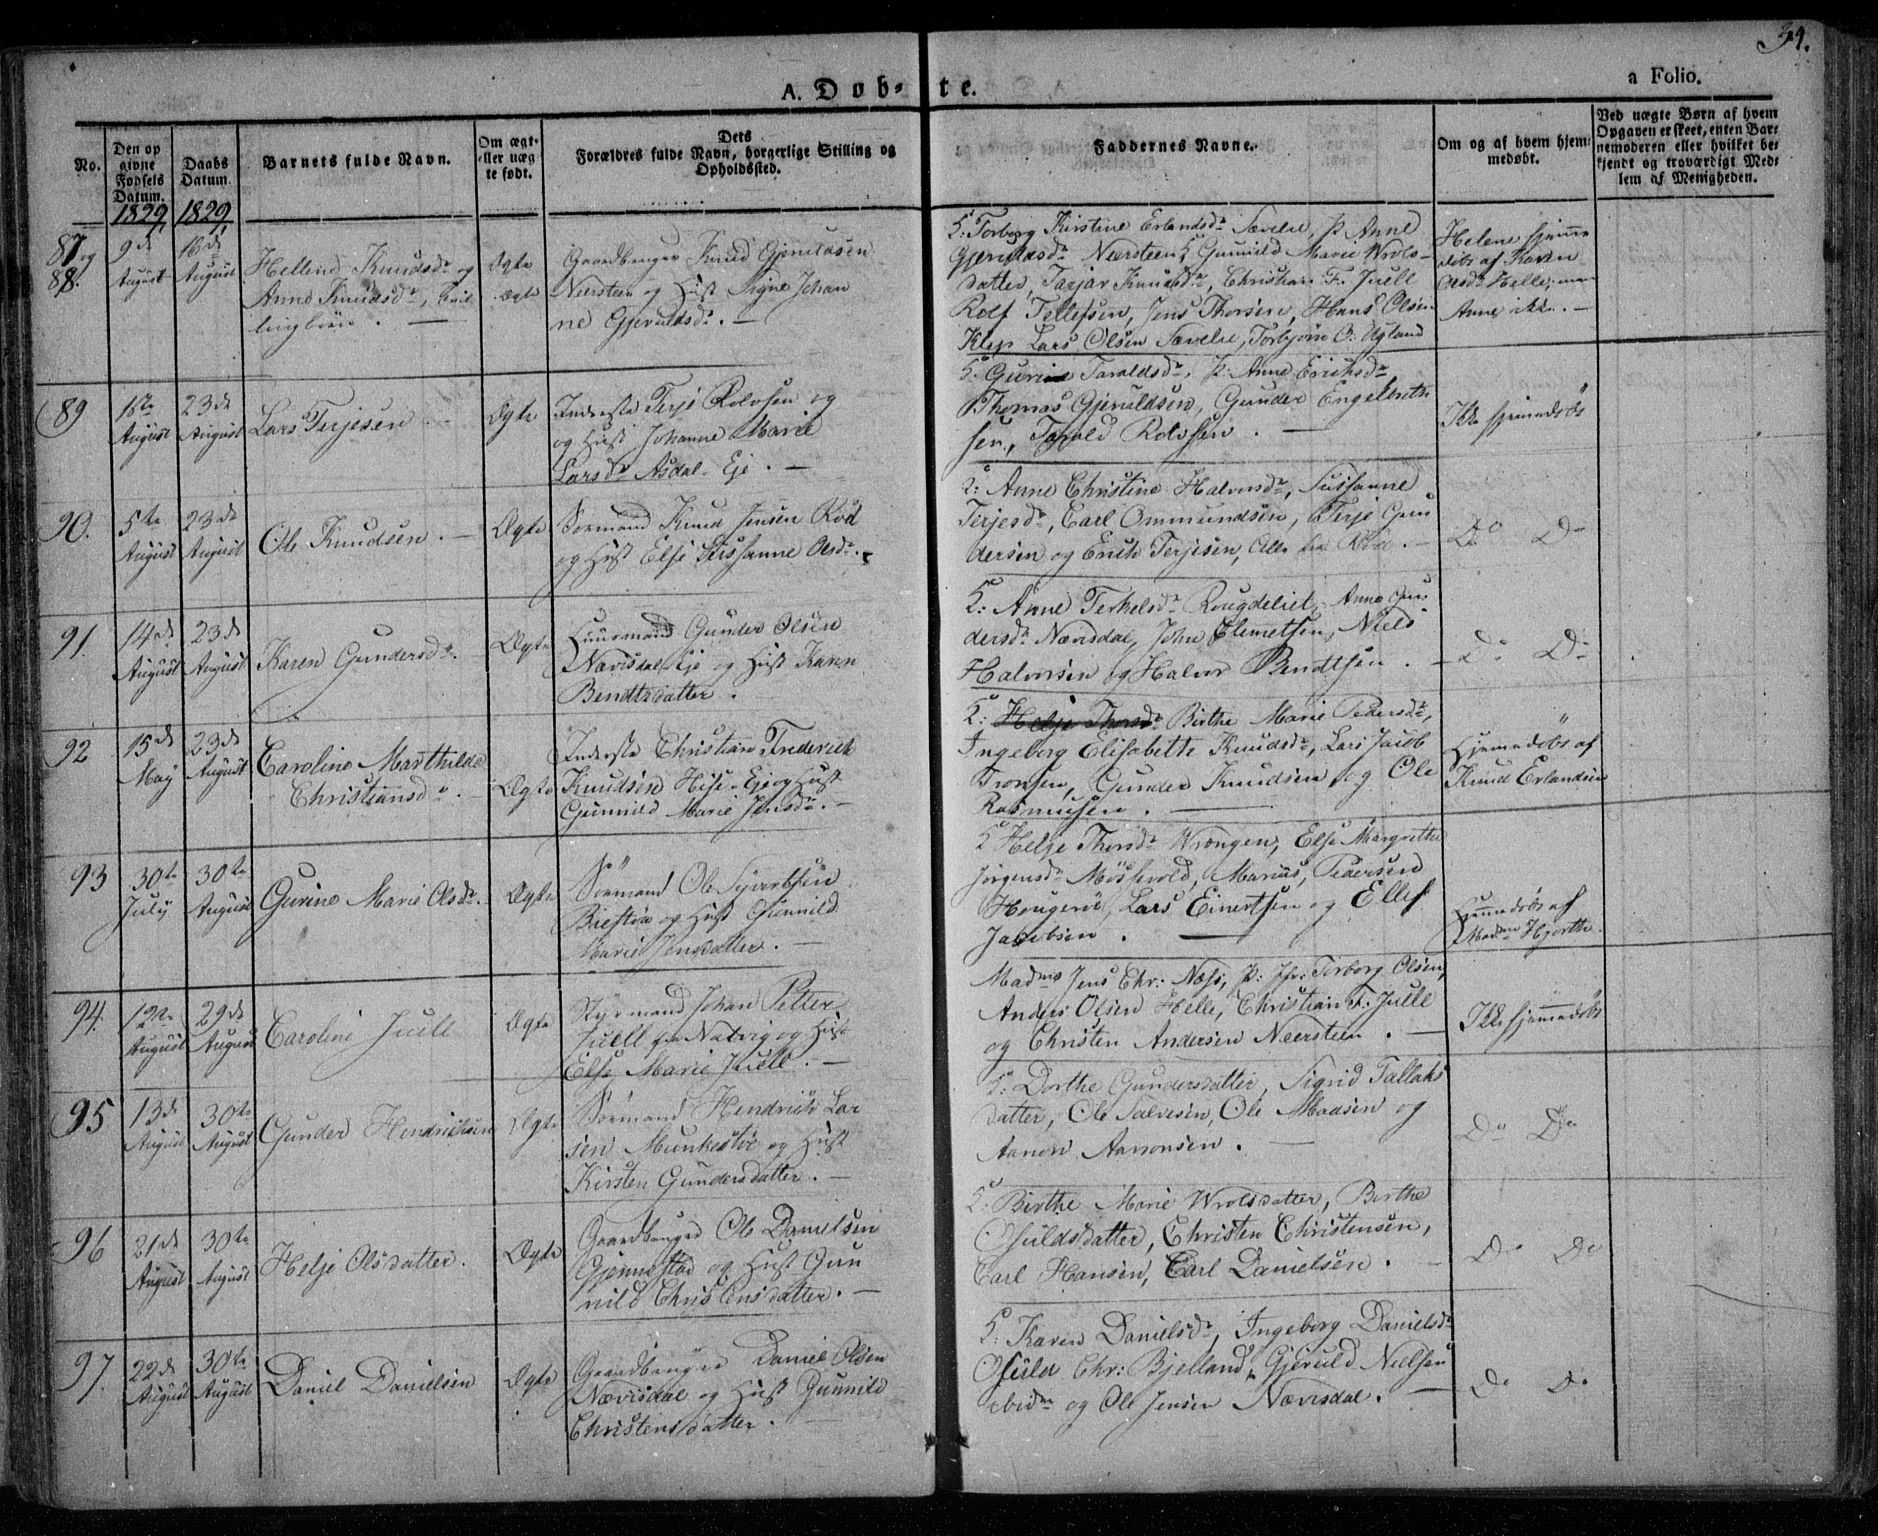 34.
A. Døb-te.
a Folio.
No.
Den op
givne
Fødsels
Datum.
1829,
Daabs
Datum.
1829,
Barnets fulde Navn.
Om ægt-
eller uæg-
te født.
Dets
Forældres fulde Navn, borgerlige Stilling og
Opholdssted.
Faddernes Navne.
Om og af hvem hjem-
medøbt.
Ved uægte Børn af hvem
Opgaven er skeet, enten Bar-
nemoderen eller hvilket be-
kjendt og troværdigt Med-
lem af Menigheden.
87 og
88.
9de
August
16de
August
Hellene Knudsdr og
Anne Knudsdr,
Ægte
Ægte
Gaardbruger Knud Gjeruldsen
Neersteen og Hust Signe Johan
ne Gjeruldsdr. —
S: Torborg Kirstine Erlandsdr Sævelie, p: Anne
Gjeruldsdr Neersteen, Gunnild Marie Wrols-
datter, Tarjar Knudsdr, Christian F. Juell
Rolf Tellefsen, Jens Thorsen, Hans Olsen
Klep Lars Olsen Sævelie, Torbjørn O. Ugland
Helene hjemme
døbt af Karen
Olsdr Helle; men
Anne ikke. —
89
18te
August
23de
August
Lars Terjesen. —
Ægte
Inderste Terje Rolvsen og
og Hust Johanne Marie
Larsdr Asdal-Eje. —
S: Gurine Taraldsdr, p: Anne Erichsdr,
Thomas Gjeruldsen, Gunder Engelbreth
sen, Tarald Rolvsen. —
Ikke hjemmedøbt
90.
5te
August
23de
August
Ole Knudsen. —
Ægte
Sørmand Knud Jensen Röd
og Hust Else Sussanne Olsdr.
S: Anne Christine Halvorsdr, Sussanne
Terjesdr, Carl Ommundsen, Terje Gun
dersen og Erich Terjesen, Alle fra Röd. —
Do Do
91.
14de
August
23de
August
Karen Gundersdr.
Ægte
Huusmand Gunder Olsen
Nævisdal-Eje og Hust Karen
Bendtsdatter.
S: Anne Terkelsdr Rougdeliet, Anne Gun
dersdr Nævisdal, John Clemetsen, Niels
Halvorsen og Halvor Bendtsen. —
Do Do
92
15de
May
23de
August
Caroline Marthilde
Christiansdr. —
Ægte
Inderste Christian Frederich
Knudsen Hise-Eje og Hust
Gunnild Marie Jensdr. —
S: Helje Thorsdr Birthe Marie Pedersdr,
Ingeborg Elisabette Knudsdr, Lars Jacob
Tronsen, Gunder Knudsen og Ole
Rasmusen. —
Hjemedøbt af
Knud Erlandsen
93
30te
July
30te
August
Gurine Marie Olsdr.
Ægte
Sørmand Ole Syvertsen
Biestöe og Hust Gunnild
Marie Jensdatter. —
S Helje Thorsdr Wrongen, Else Margrethe
Jörgensdr Möskevold, Marius Pedersen
Hougene, Lars Einertsen og Ellef
Jacobsen. —
Hjemmedøbt af
Madme Hjorthe.
94.
12te
August
29de
August
Caroline Juell
Ægte
Styrmand Johan Petter
Juell fra Natvig og Hust
Else Marie Juell. —
Madme Jens Chr: Næss, p: Jfr: Torborg Olsen,
Anders Olsen Helle, Christian F: Juell
og Christen Andersen Neersteen. —
Ikke hjemmedøbt
95
13de
August
30te
August
Gunder Hendrichsen
Ægte
Sørmand Hendrich Lar
sen Munkestöe og Hust
Kirsten Gundersdatter. —
S: Dorthe Gundersdatter, Sigrid Tallaks
datter, Ole Salvesen, Ole Madsen og
Aanon Aanonsen. —
Do Do
96
21de
August
30te
August
Helje Olsdatter.
Ægte
Gaardbruger Ole Danielsen
Gjennestad og Hust Gun
nild Christensdatter. —
S: Birthe Marie Wrolsdatter, Berthe
Osuldsdatter, Christen Christensen,
Carl Hansen, Carl Danielsen. —
Do Do
97.
22de
August
30te
August
Daniel Danielsen
Ægte
Gaardbruger Daniel Olsen
Nævisdal og Hust Gunnild
Christensdatter. —
S: Karen Danielsdr, Ingeborg Danielsdr
Osuld Chr: Bjelland, Gjeruld Nielsen
ibidm og Ole Jensen Nævisdal. —
Do Do